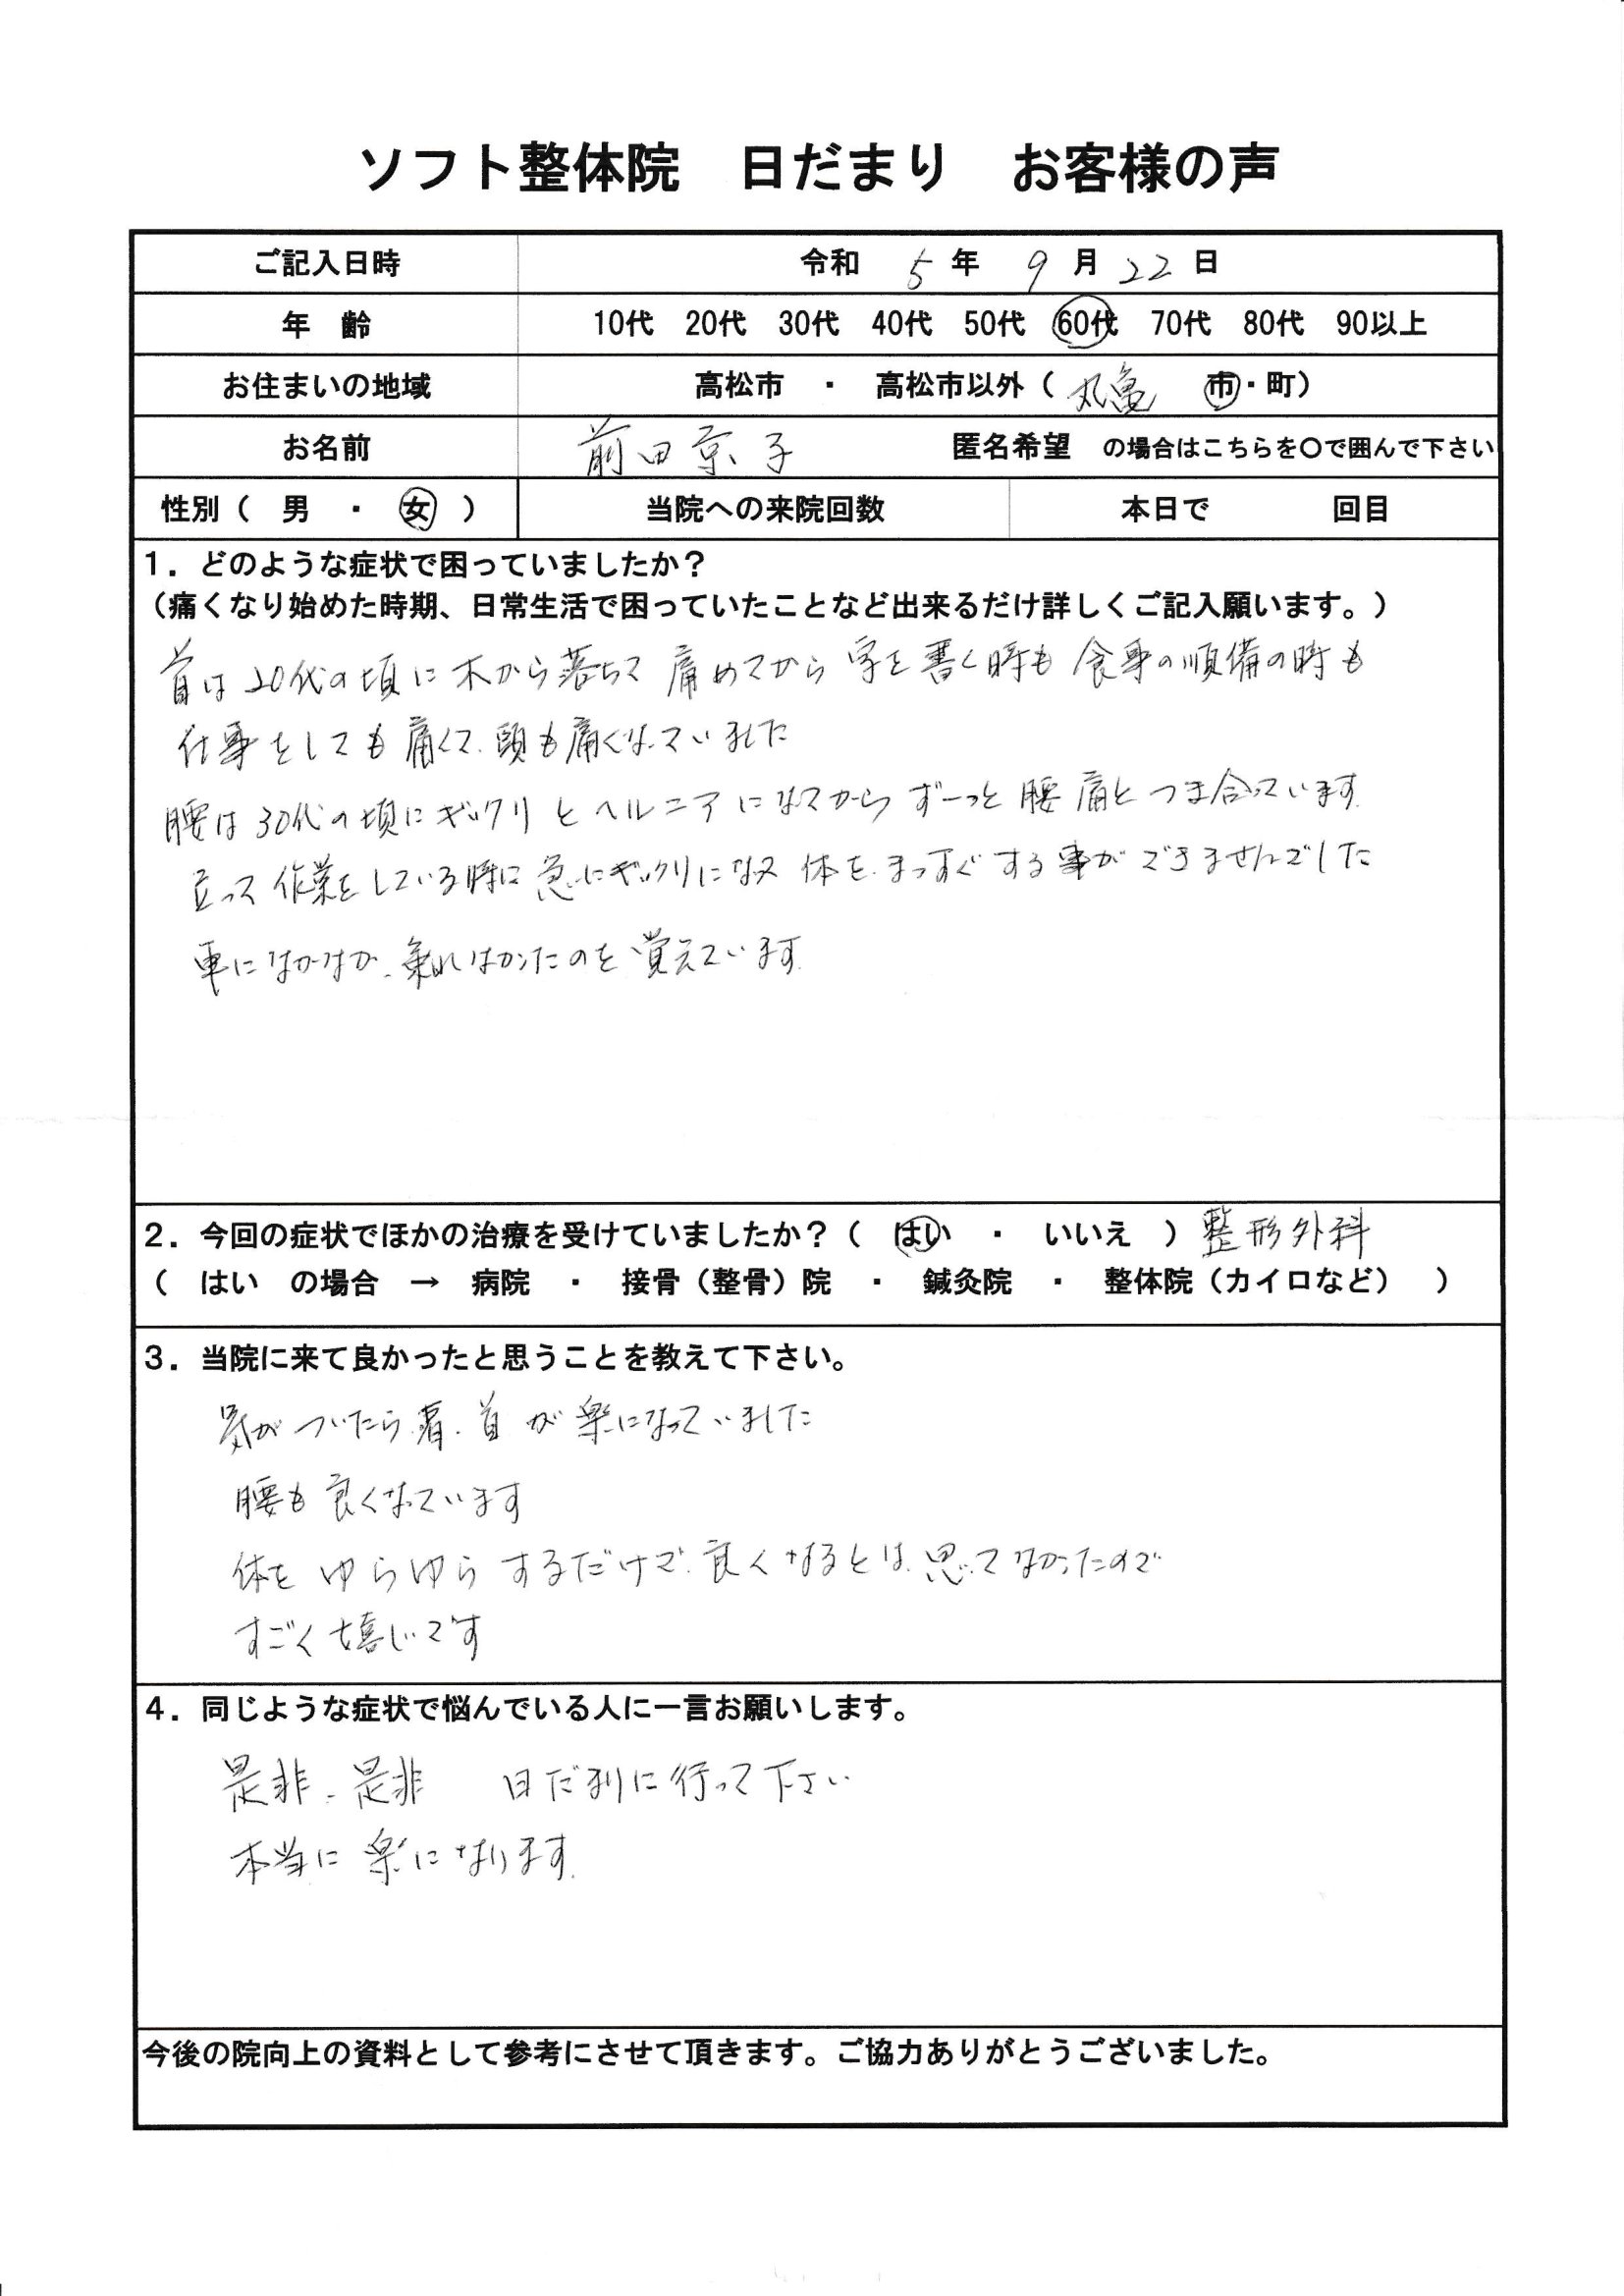 ソフト整体院 日だまり お客様の声
ご記入日時 令和 5 年 9 月 22 日
年 齢 10代 20代 30代 40代 50代 60代 70代 80代 90以上
お住まいの地域 高松市 ・ 高松市以外（ 丸亀 市・町）
お名前 前田京子 匿名希望 の場合はこちらを〇で囲んで下さい
性別（ 男 ・ 女 ） 当院への来院回数 本日で 回目
1．どのような症状で困っていましたか？
（痛くなり始めた時期、日常生活で困っていたことなど出来るだけ詳しくご記入願います。）
首は20代の頃に木から落ちて痛めてから字を書く時も食事の準備の時も
仕事をしても痛くて、頭も痛くなっていました
腰は30代の頃にギックリとヘルニアになってからずーっと腰痛とつき合っています
立って作業をしている時に急にギックリになって体をまっすぐする事ができませんでした
車になかなか、乗れなかったのを覚えています
2．今回の症状でほかの治療を受けていましたか？（ はい ・ いいえ ）整形外科
（ はい の場合 → 病院 ・ 接骨（整骨）院 ・ 鍼灸院 ・ 整体院（カイロなど） ）
3．当院に来て良かったと思うことを教えて下さい。
気がついたら肩、首が楽になっていました
腰も良くなっています
体をゆらゆらするだけで、良くなるとは思ってなかったので
すごく嬉しいです
4．同じような症状で悩んでいる人に一言お願いします。
是非、是非 日だまりに行って下さい
本当に楽になります
今後の院向上の資料として参考にさせて頂きます。ご協力ありがとうございました。